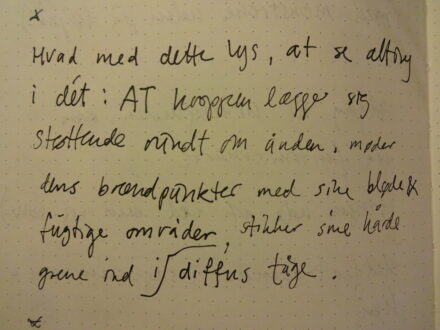 x
Hvad med dette lys, at se alting
i dét: AT kroppen lægger sig
støttende rundt om ånden, møder
dens brændpunkter med sine bløde &
fugtige områder, stikker sine hårde
grene ind i diffus tåge.
x